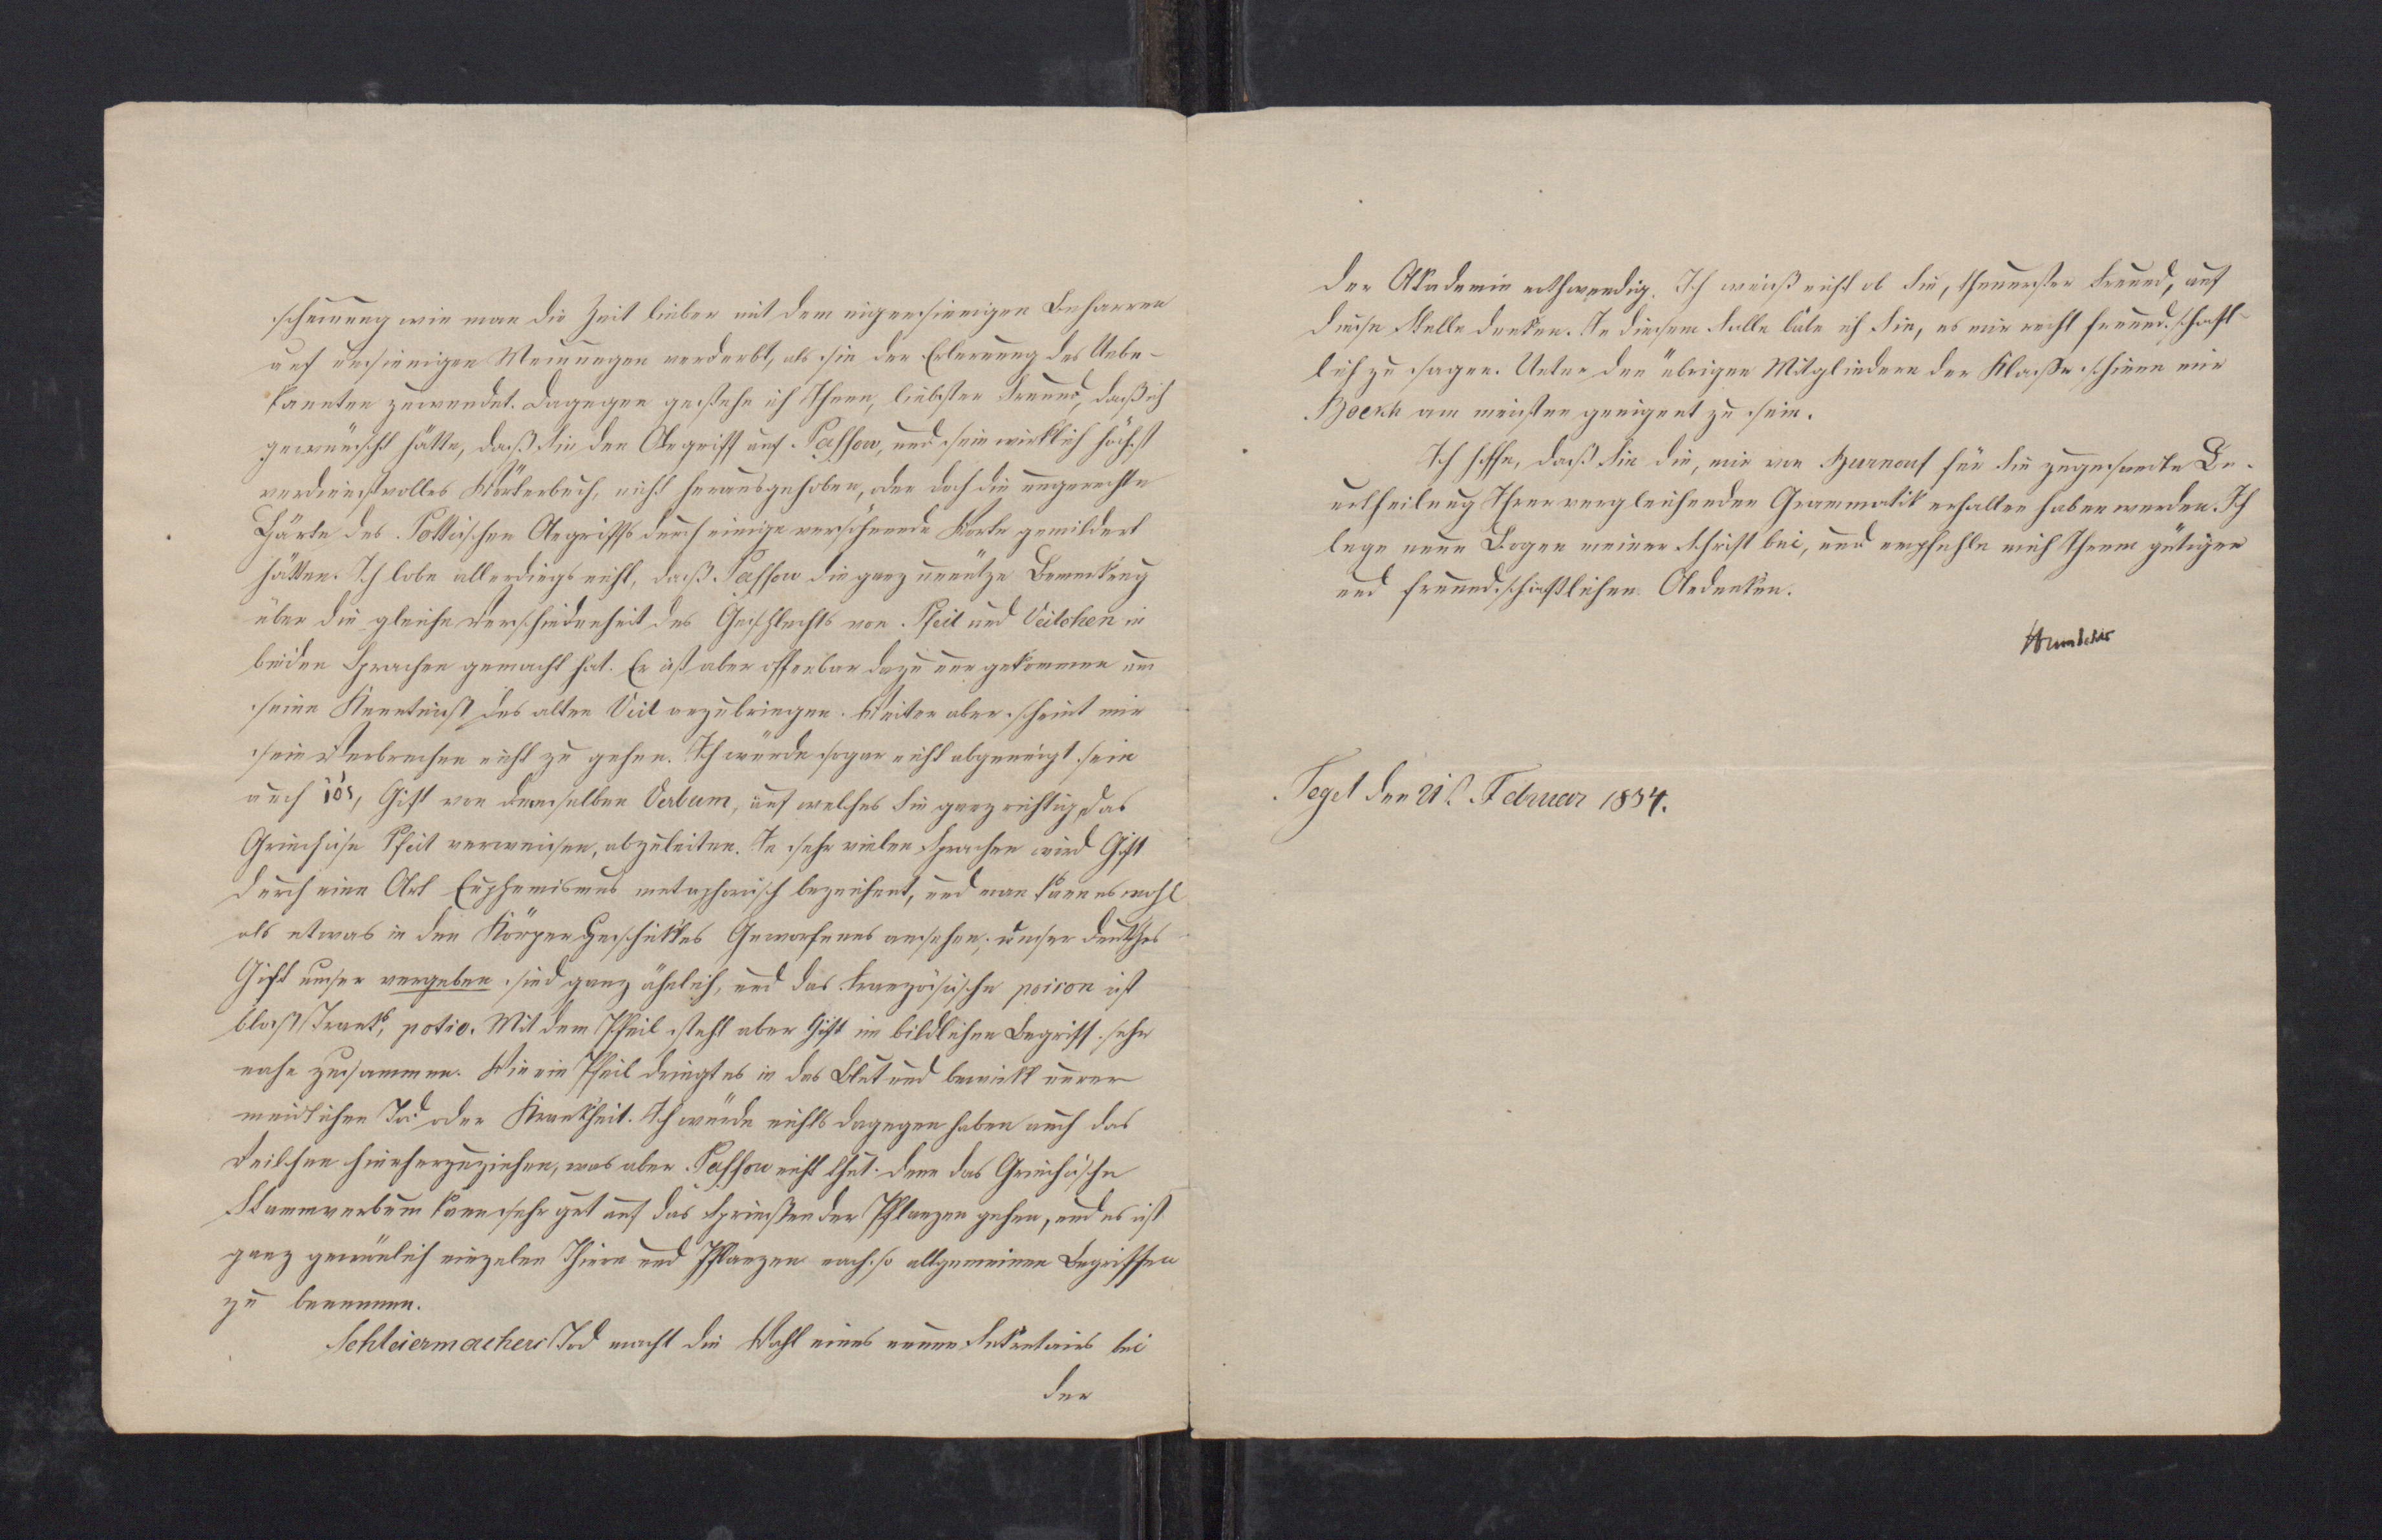 scheinung wie man die Zeit lieber mit dem eigensinnigen Beharren
auf unsinnigen Meinungen verderbt, als sie der Erlernung des Unbe-
kannten zuwendet. Dagegen gestehe ich Ihnen, liebster Freund, daß ich
gewünscht hätte, daß Sie den Angriff auf Passow, und sein wirklich höchst
verdienstvolles Wörterbuch, nicht herausgehoben, oder doch die ungerechte
Härte des Pottischen Angriffs durch einige versöhnende Worte gemildert
hätten. Ich lobe allerdings nicht, daß Passow die ganz unnütze Bemerkung
über die gleiche Verschiedenheit des Geschlechts von Pfeil und Veilchen in
beiden Sprachen gemacht hat. Er ist aber offenbar dazu nur gekommen um
seine Kenntniß des alten Veil anzubringen. Weiter aber scheint mir
sein Verbrechen nicht zu gehen. Ich würde sogar nicht abgeneigt sein
auch ἰός, Gift von demselben Verbum, auf welches Sie ganz richtig das
Griechische Pfeil verweisen, abzuleiten. In sehr vielen Sprachen wird Gift
durch eine Art Euphemismus metaphorisch bezeichnet, und man kann es wohl
als etwas in den Körper Geschüttes Geworfenes ansehen; unser deutsches
Gift unser vergeben sind ganz ähnlich, und das Französische poison ist
bloß Trank, potio. Mit dem Pfeil steht aber Gift im bildlichen Begriff sehr
nahe zusammen. Wie ein Pfeil dringt es in das Blut und bewirkt unver
meidlichen Tod oder Krankheit. Ich würde nichts dagegen haben auch das
Veilchen hierherzuziehen, was aber Passow nicht thut. denn das Griechische
Stammverbum kann sehr gut auf das Sprießen der Pflanzen gehen, und es ist
ganz gewönlich einzelne Thiere und Pflanzen nach so allgemeinen Begriffen
zu benennen.
Schleiermachers Tod macht die Wahl eines neuen Sekretairs bei
der
der Akademie nothwendig. Ich weiß nicht ob Sie, theuerster Freund, auf
diese Stelle denken. In diesem Falle bäte ich Sie, es mir recht freundschaft-
lich zu sagen. Unter den übrigen Mitgliedern der Klasse schiene mir
Boekh am meisten geeignet zu sein.
Ich hoffe, daß Sie die, mir von Burnouf für Sie zugesandte Be-
urtheilung Ihrer vergleichenden Grammatik erhalten haben werden. Ich
lege neue Bogen meiner Schrift bei, und empfehle mich Ihrem gütigen
und freundschaftlichen Andenken.
Humboldt
Tegel den 21 Februar 1834.